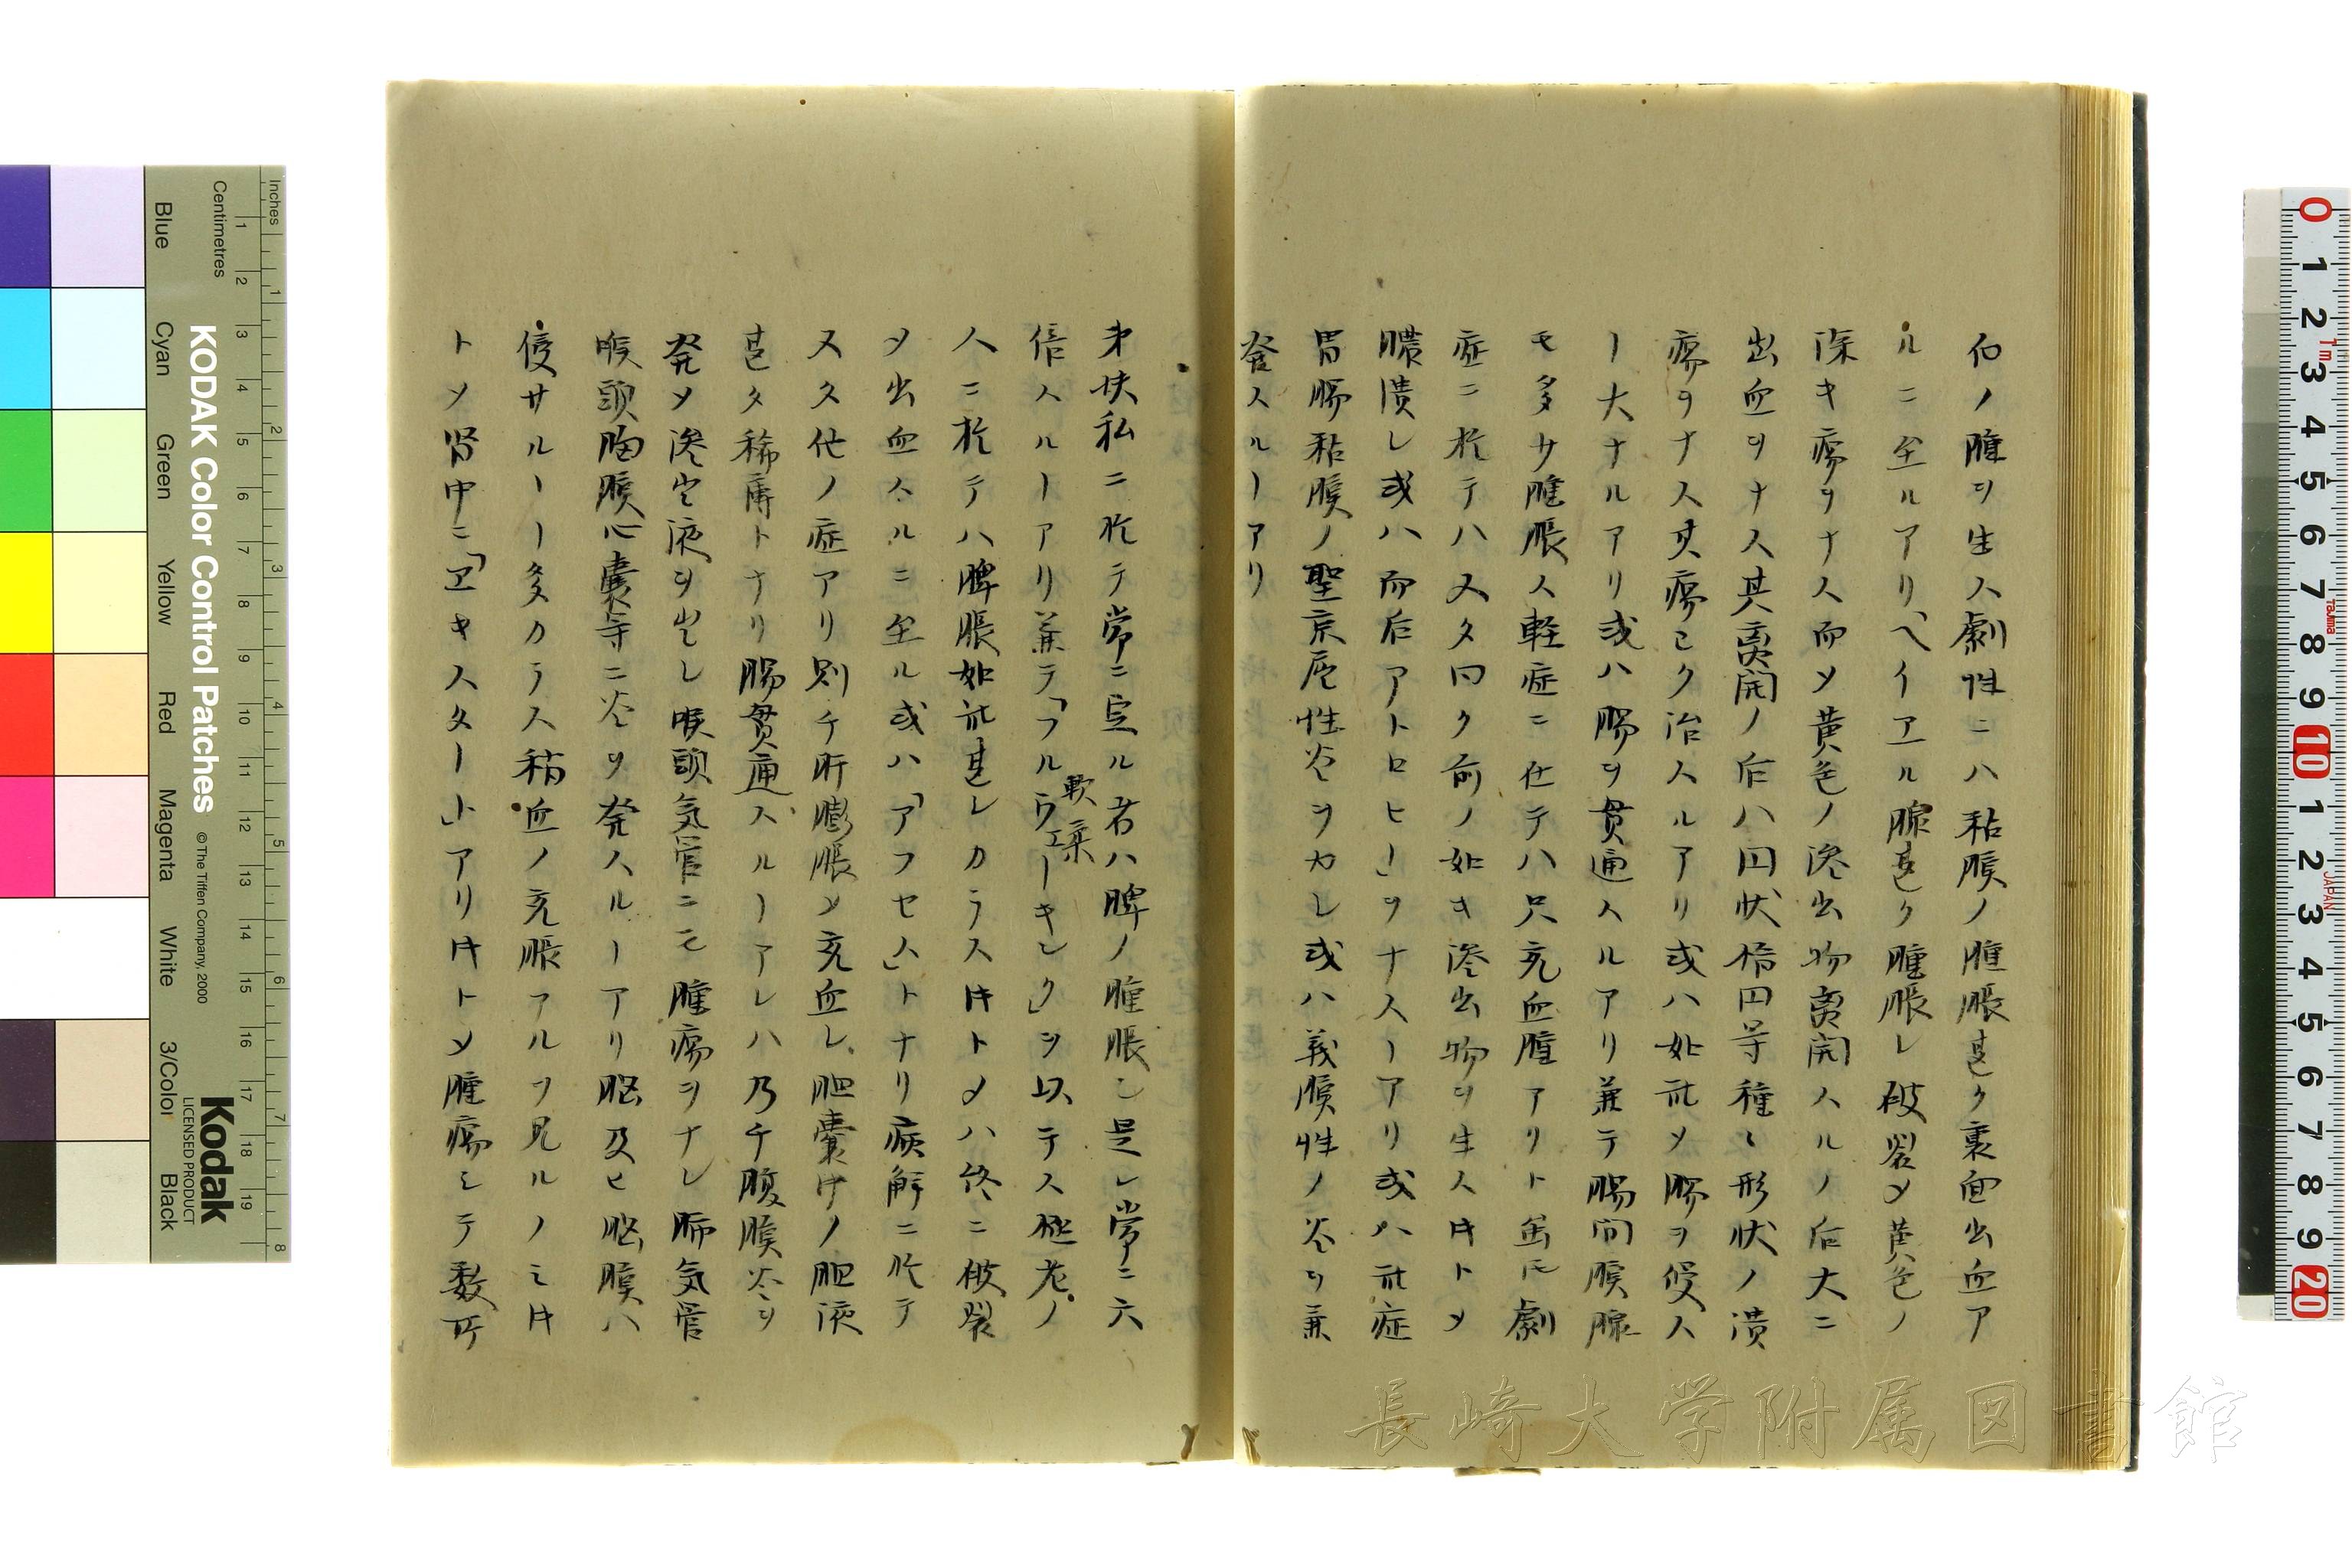 伯ノ腫ヲ生ス劇性ニハ粘膜ノ腫脹甚ク裏面出血ア
ルニ至ルアリ「ヘイヱル腺甚ク腫脹シ破裂メ黄色ノ
深キ瘍ヲナス而メ黄色ノ滲出物離開スルノ后大ニ
出血ヲナス其離開ノ后ハ円状楕円等種々形状ノ潰
瘍ヲナス其瘍ヨク治スルアリ或ハ如斯メ腸ヲ侵ス
ー大ナルアリ或ハ腸ヲ貫通スルアリ兼テ腸間膜腺
モ多少腫脹ス軽症ニ在テハ只充血腫アリト虽𪜈劇
症ニ於テハ又タ曰ク前ノ如キ滲出物ヲ生ス𪜈トメ
膿潰シ或ハ而后アトロヒー」ヲナスーアリ或ハ斯症
胃腸粘膜ノ聖京偓性炎ヲカレ或ハ義膜性ノ炎ヲ兼
発スルーアリ
第扶私ニ於テ常ニ見ル者ハ脾ノ腫脹シ是レ常ニ六
倍スルーアリ兼テ「フルウエーキング」ヲ以テス極老ノ
軟柔
人ニ於テハ脾脹如斯甚シカラス𪜈トメハ終ニ破裂
メ出血スルニ至ル或ハ「アフセス」トナリ病解ニ於テ
又久他ノ症アリ則チ肝膨脹メ充血シ胆嚢中ノ胆液
甚タ稀薄トナリ腸貫通スルーアレハ乃チ腹膜炎ヲ
発メ滲出液ヲ出シ喉頭気管ニモ腫瘍ヲナシ肺気管
喉頭胸膜心嚢等ニ炎ヲ発スルーアリ脳及ヒ脳膜ハ
侵サルーー多カラス稍血ノ充脹アルヲ見ルノミ𪜈
トメ腎中ニ「ヱキスタート」アリ𪜈トメ腫瘍ミテ数所